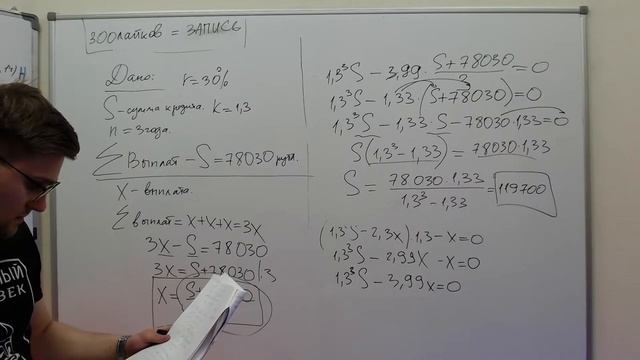 300лайков = ЗАПИСЬ
Дано: r=30%
S-сумма кредита. k=1,3
n=3года.
∑ Выплат - S=78030 рубл.
X-выплата.
∑выплат=X+X+X=3X
3X-S=78030
3X=S+78030 |:3
X=
1,3³S-3,99·(S+78030)/3=0
1,3³S-1,33·(S+78030)=0
1,3³S-1,33·S-78030·1,33=0
S(1,3³-1,33)=78030·1,33
S=(78030·1,33)/(1,3³-1,33)=119700
(1,3²S-2,3x)·1,3-x=0
1,3³S-2,99x-x=0
1,3³S-3,99x=0
НЫЙ
ВЕК